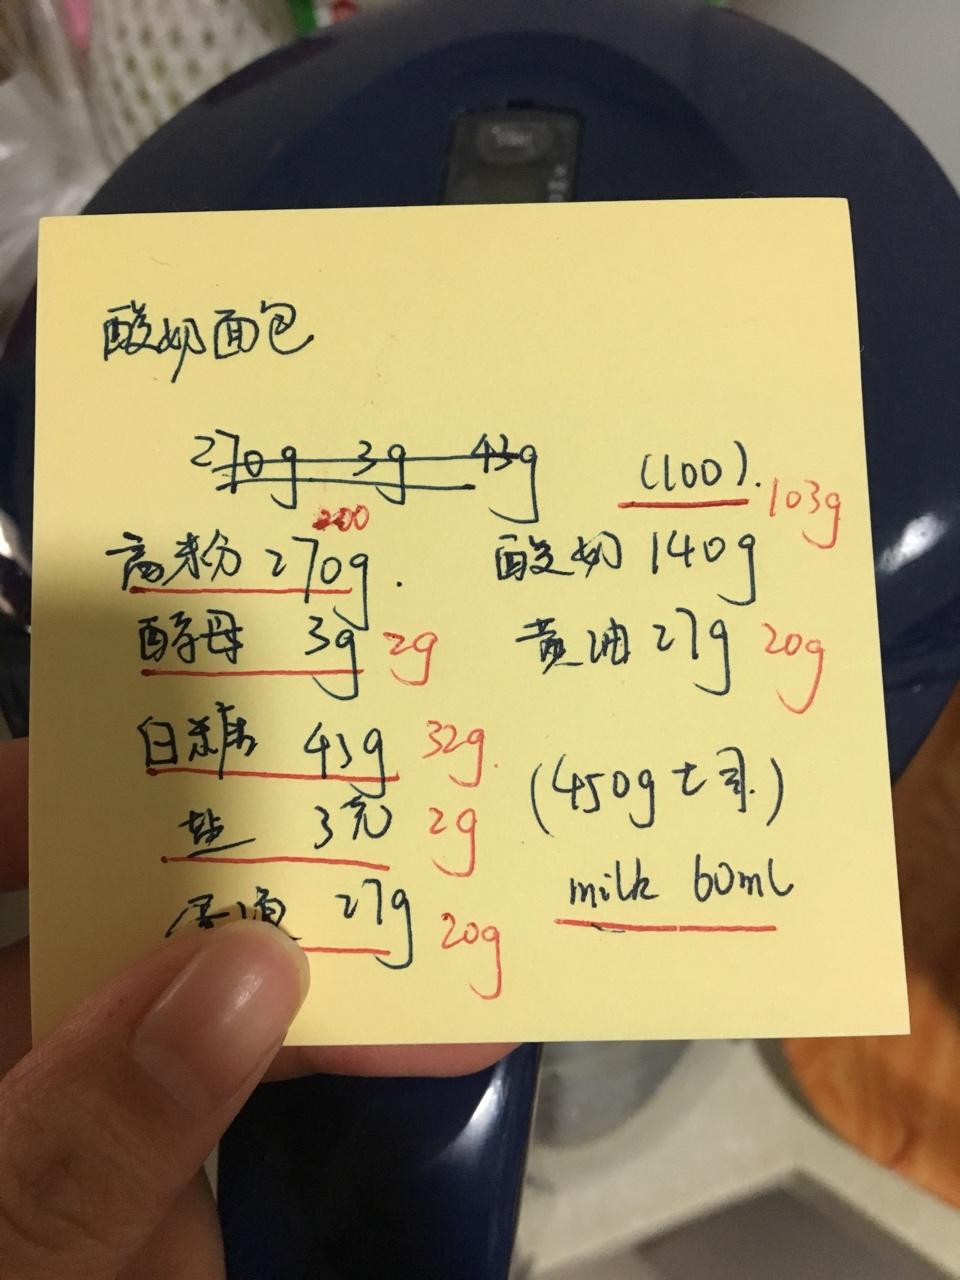 酸奶面包
270g 3g 43g
(100). 103g
200
高粉 270g.
酸奶 140g
酵母 3g 2g
黄油 27g 20g
白糖 43g 32g.
盐 3克 2g
(450g 土司.)
蛋液 27g 20g
milk 60ml